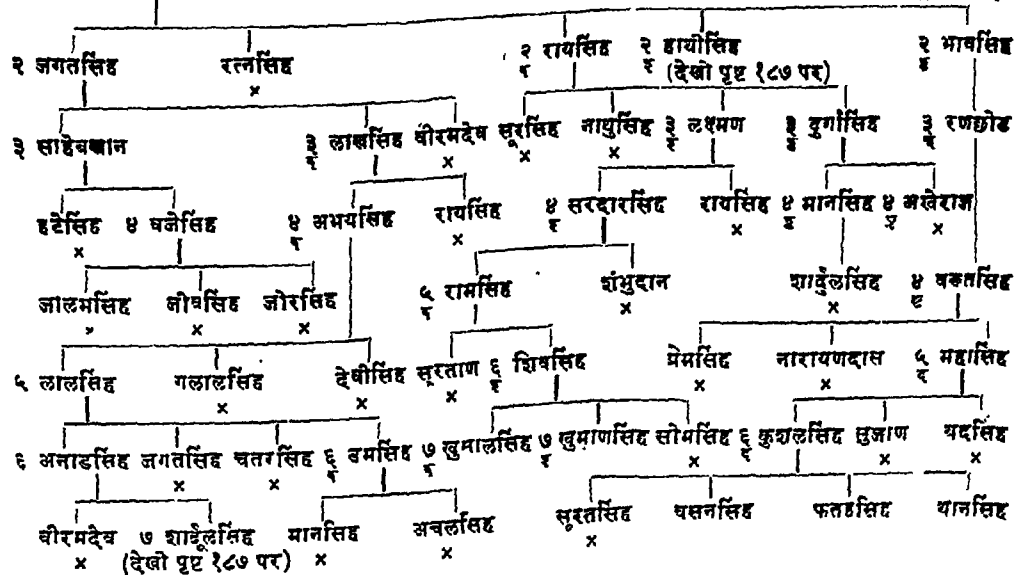 २ जगतसिंह रत्नसिंह २/१ रायसिंह २/२ हाथीसिंह २/३ भावसिंह
× (देखो पृष्ट १८७ पर)
३ साहेबखान ३/१ लाखसिंह वीरमदेव सूरसिंह नाथुसिंह ३/२ लक्ष्मण ३/३ दुर्गासिंह ३/४ रणछोड
× × ×
हटेसिंह ४ घजेसिंह ४/१ अभयसिंह रायसिंह ४/२ सरदारसिंह रायसिंह ४/३ मानसिंह ४/४ अखेराज
× × × ×
जालमसिंह जीवसिंह जोरसिंह ५/१ रामसिंह शंभुदान शार्दुलसिंह ४/५ वक्तसिंह
× × × × ×
५ लालसिंह गलालसिंह देवीसिंह सूरताण ६/२ शिवसिंह प्रेमसिंह नारायणदास ५/२ महासिंह
× × × × ×
६ अनाडसिंह जगतसिंह चतरसिंह ६/१ उमसिंह ७/१ खुमालसिंह ७/२ खुमाणसिंह सोमसिंह ६/३ कुशलसिंह सुजाण यदसिंह
× × × × ×
वीरमदेव ७ शार्दूलसिंह मानसिंह अचलसिंह सूरतसिंह वसनसिंह फतहसिंह थानसिंह
× (देखो पृष्ट १८७ पर) × × ×